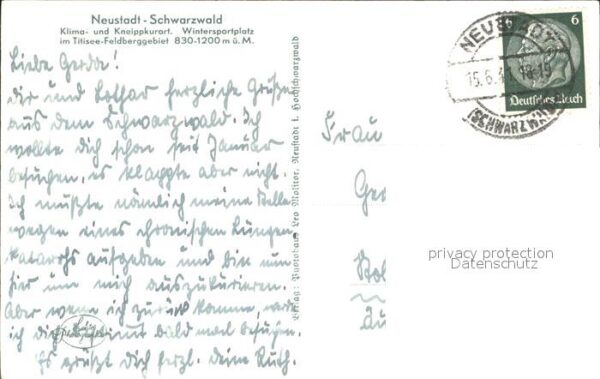 Neustadt - Schwarzwald
Klima- und Kneippkurort. Wintersportplatz
im Titisee-Feldberggebiet 830-1200 m ü. M.
Liebe Gerda!
Dir und Lothar herzliche Grüße
aus dem Schwarzwald. Ich
wollte dich schon seit Januar
besuchen, es klappte aber nicht.
Ich mußte nämlich meine Stelle
wegen eines chronischen Lungen
katarrhs aufgeben und bin nun
hier um mich auszukurieren.
Aber wenn ich zurück komme, werde
ich dich bestimmt bald mal besuchen.
Es grüßt dich herzl. deine Ruth.
Verlag: Photohaus Leo Molitor, Neustadt i. Hochschwarzwald
NEUSTADT
15.6.
18-19
(SCHWARZWALD)
6
Deutsches Reich
Frau
Ger
privacy protection
Datenschutz